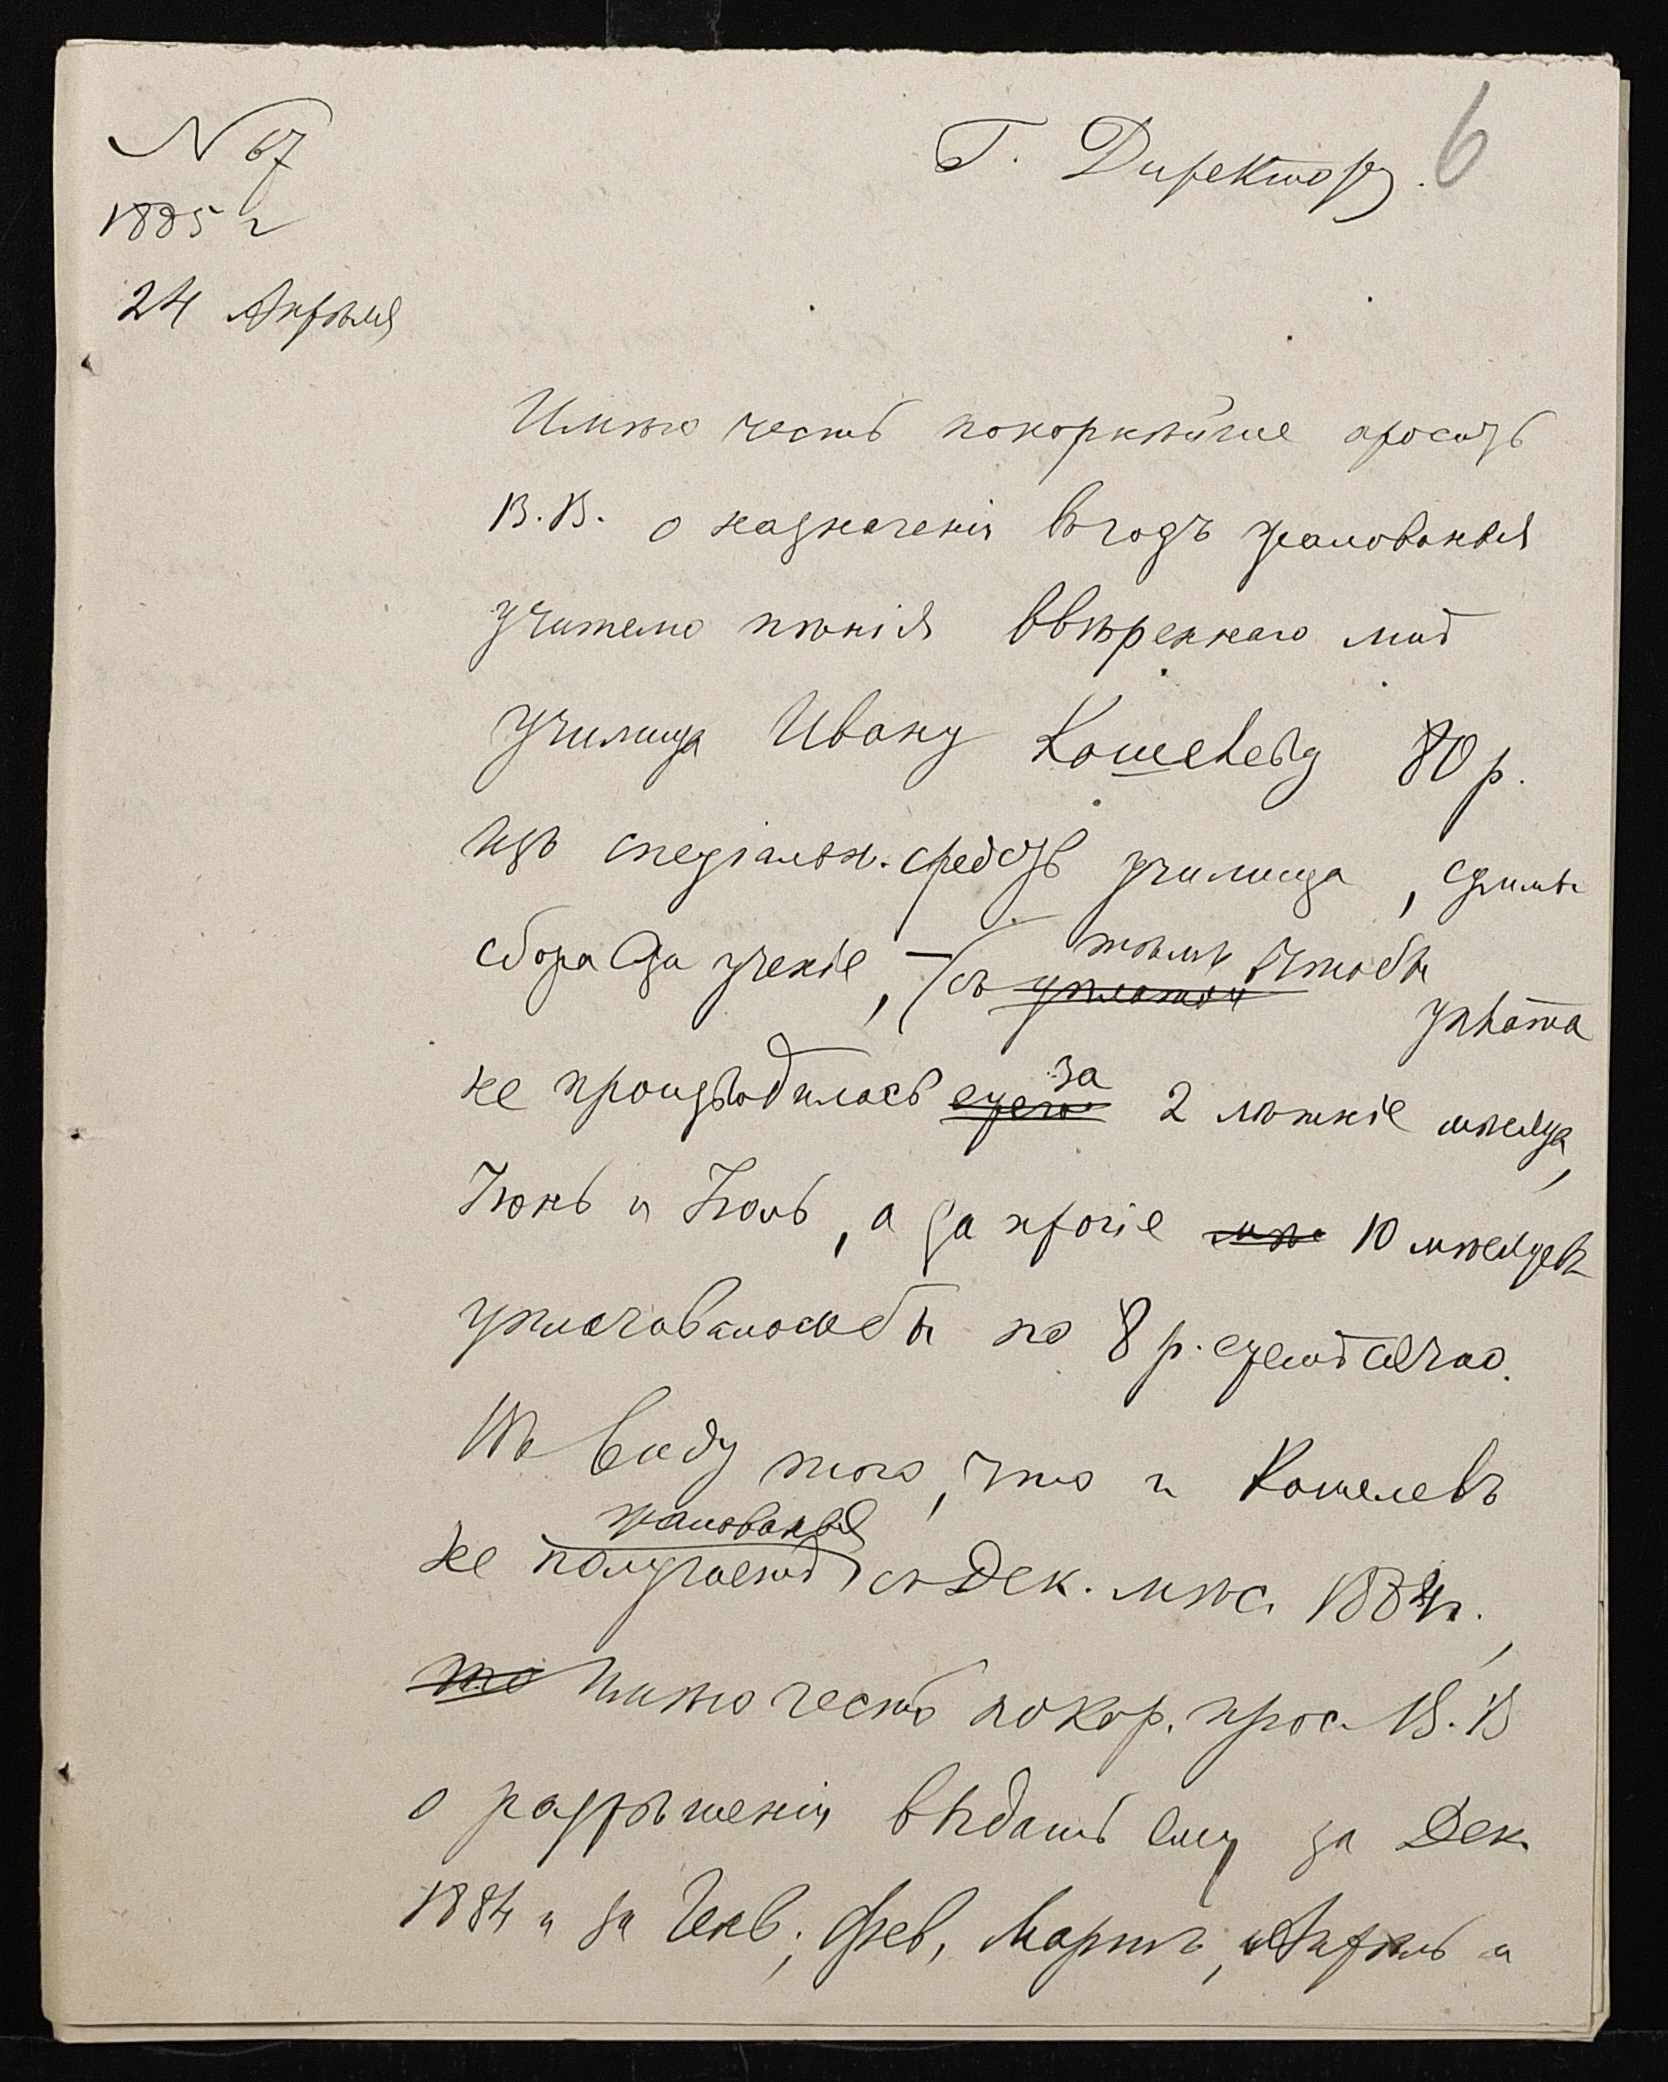 N 67
Г. Директору. 6
1885 г
24 Апрѣля
Имѣю честь покорнѣйше просить
В. В. о назначеніи въ годъ жалованья
учителю пѣнія ввѣреннаго мнѣ
училища Ивану Кошелеву 80 р.
изъ спеціальн. средств училища,
сбора за ученіе, – съ тѣмъ чтобы
уплата
не производилась за 2 лѣтніе мѣсяца,
Іюнь и Іюль, а за прочіе 10 мѣсяцевъ
уплачивалось бы по 8 р. ежемѣсячно.
Въ виду того, что г. Кошелевъ
жалованья
не получаетъ съ Дек. мѣс. 1884 г.,
то имѣю честь покор. прос. В. В
о разрѣшеніи выдать ему за Дек.
1884 и за Янв., Фев, Мартъ, Апрѣль и